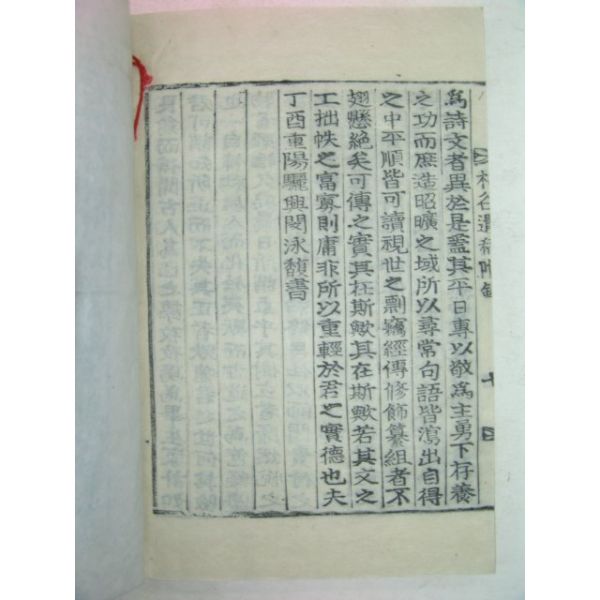 為詩文者異於是蓋其平日專以敬為主勇下存養
之功而庶造昭曠之域所以尋常句語皆瀉出自得
之中平順皆可讀視世之剽竊經傳修飾纂組者不
翅懸絶矣可傳之實其在斯歟其在斯歟若其文之
工拙帙之富寡則庸非所以重輕於君之實德也夫
丁酉重陽驪興閔泳馥書
谷遺稿附錄
十